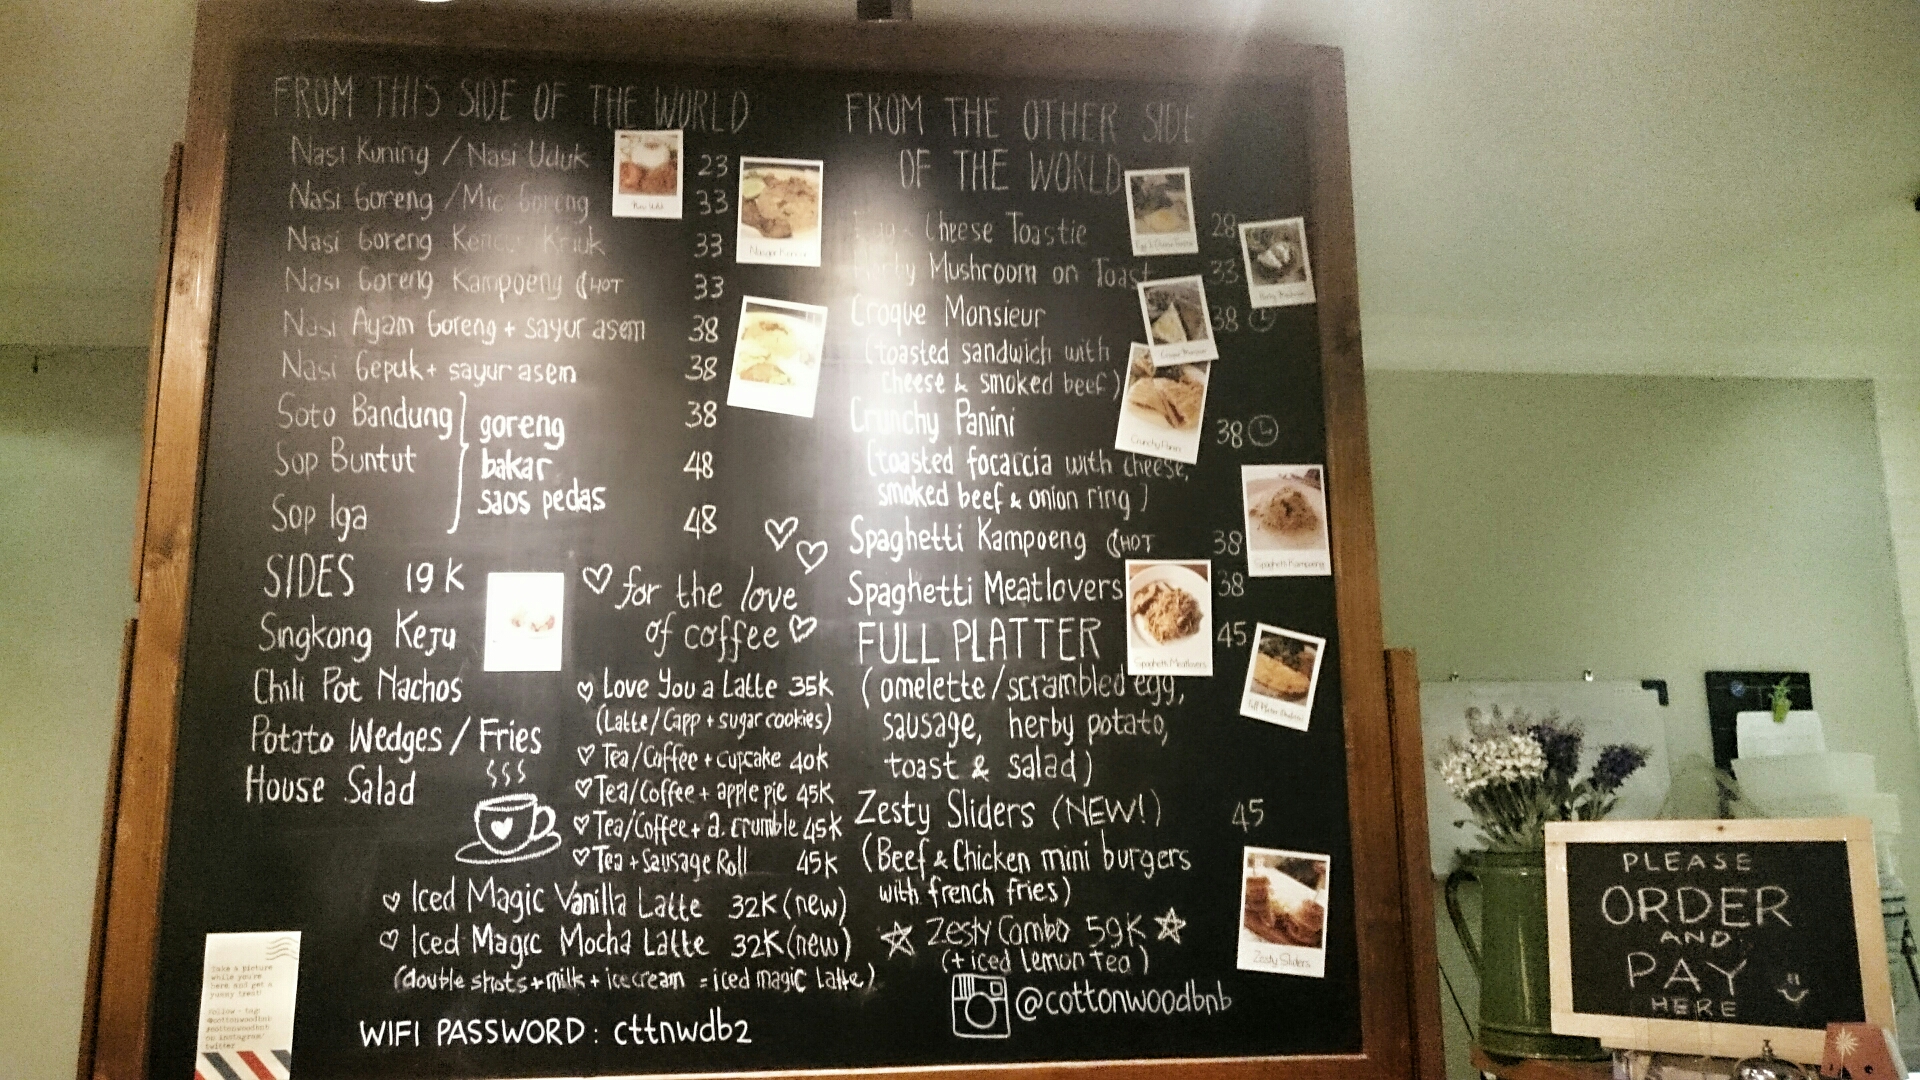 FROM THIS SIDE OF THE WORLD
Nasi Kuning / Nasi Uduk 23
Nasi Goreng / Mie Goreng 33
Nasi Goreng Kencur Kriuk 33
Nasi Goreng Kampoeng HOT 33
Nasi Ayam Goreng + sayur asem 38
Nasi Gepuk + sayur asem 38
Soto Bandung 38
Sop Buntut 48
Sop Iga 48
goreng
bakar
saos pedas
SIDES 19K
Singkong Keju
Chili Pot Nachos
Potato Wedges / Fries
House Salad
for the love
of coffee
Love You a Latte 35K
(Latte/Capp + sugar cookies)
Tea/Coffee + cupcake 40K
Tea/Coffee + apple pie 45K
Tea/Coffee + a. crumble 45K
Tea + Sausage Roll 45K
Iced Magic Vanilla Latte 32K (new)
Iced Magic Mocha Latte 32K (new)
(double shots + milk + icecream = iced magic latte)
WIFI PASSWORD: cttnwdb2
FROM THE OTHER SIDE
OF THE WORLD
Cheese Toastie 28
Mushroom on Toast 33
Croque Monsieur 38
(toasted sandwich with
cheese & smoked beef)
Crunchy Panini 38
(toasted focaccia with cheese,
smoked beef & onion ring)
Spaghetti Kampoeng HOT 38
Spaghetti Meatlovers 38
FULL PLATTER 45
(omelette/scrambled egg,
sausage, herby potato,
toast & salad)
Zesty Sliders (NEW!) 45
(Beef & Chicken mini burgers
with french fries)
Zesty Combo 59K
(+ iced lemon tea)
@cottonwoodbnb
Crunchy Panini
Spaghetti Kampoeng
Spaghetti Meatlovers
Zesty Sliders
Take a picture
while you're
here and get a
yummy treat!
PLEASE
ORDER
AND
PAY
HERE